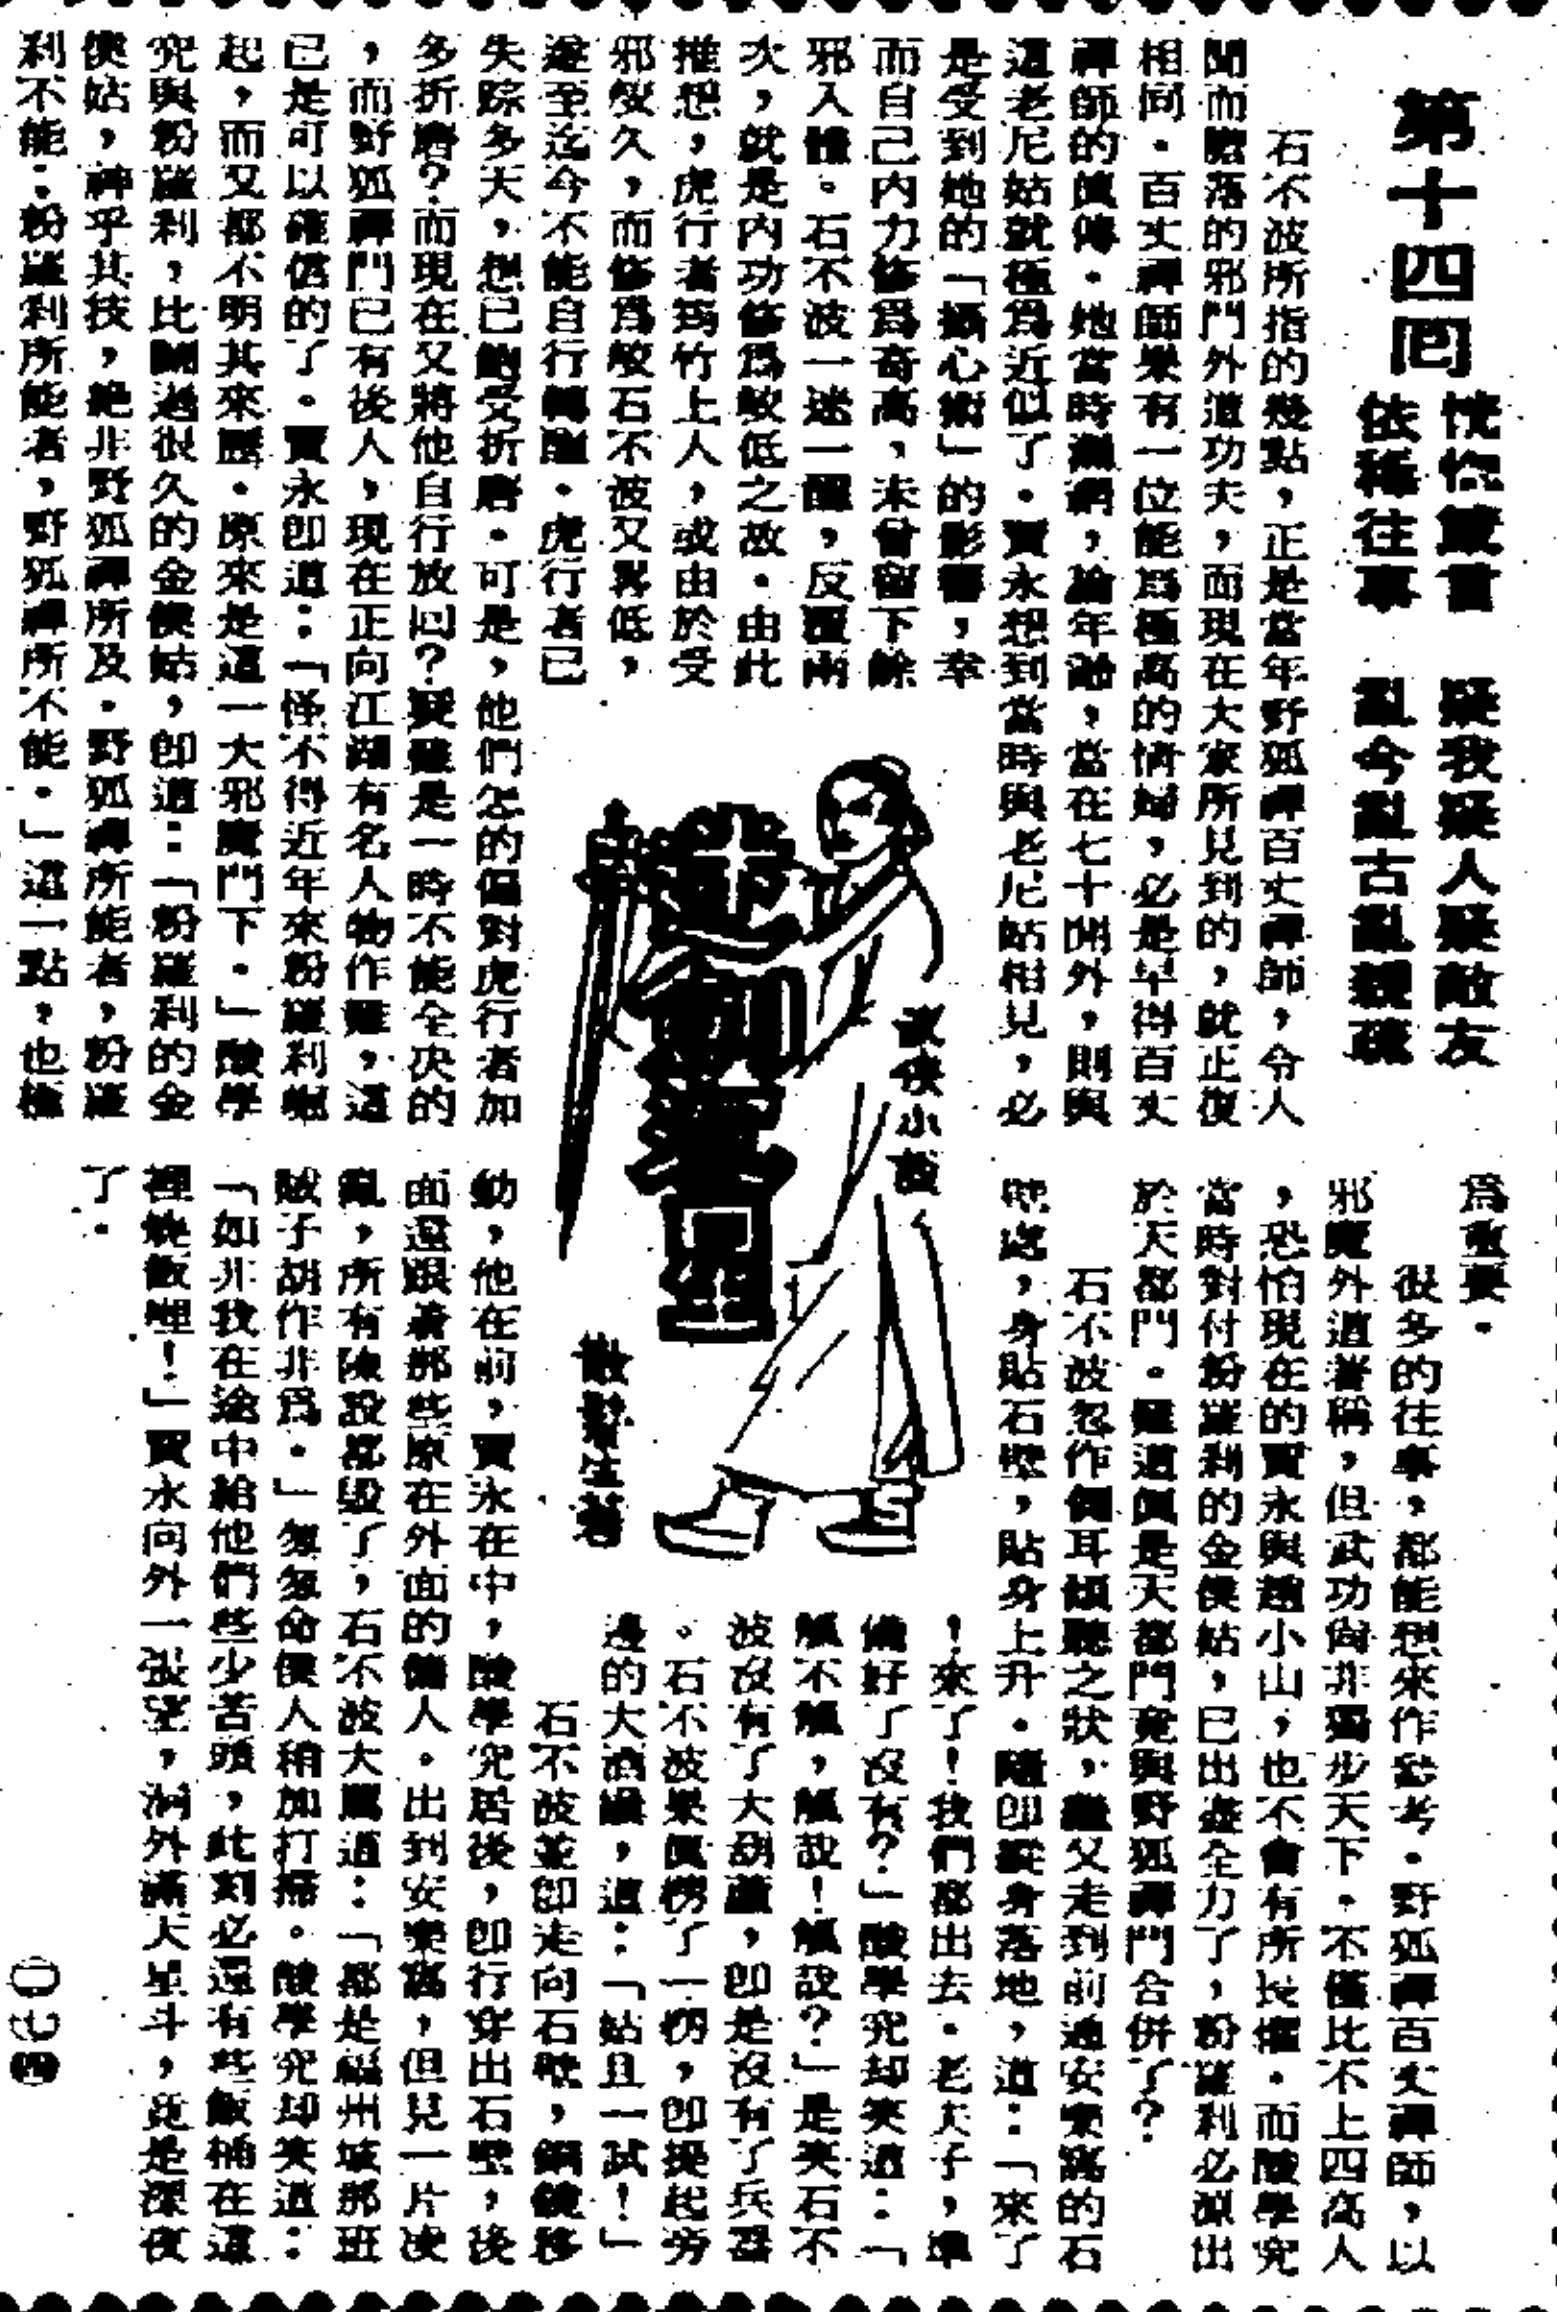 第十四回
恍惚叢言　疑我疑人疑敵友
依稀往事　亂今亂古亂親疏
石不波所指的幾點，正是當年野狐禪百丈禪師，令人
聞而膽落的邪門外道功夫，而現在大家所見到的，就正復
相同。百丈禪師果有一位能爲極高的情婦，必是早得百丈
禪師的眞傳。她當時漏網，論年齡，當在七十開外，則與
這老尼姑就極爲近似了。賈永想到當時與老尼姑相見，必
是受到她的「攝心術」的影響，幸
而自己內力修爲奇高，未曾留下餘
邪入體。石不波一迷一醒，反覆兩
次，就是內功修爲較低之故。由此
推想，虎行者爲竹上人，或由於受
邪較久，而修爲較石不波又畧低，
遂至迄今不能自行轉醒。虎行者已
失踪多天，想已飽受折磨。可是，他們怎的偏對虎行者加
多折磨？而現在又將他自行放回？疑雖是一時不能全决的
，而野狐禪門已有後人，現在正向江湖有名人物作難，這
已是可以確信的了。賈永卽道：「怪不得近年來粉羅刹崛
起，而又都不明其來歷。原來是這一大邪魔門下。」酸學
究與粉羅刹，比鬭過很久的金僕姑，卽道：「粉羅刹的金
僕姑，神乎其技，絕非野狐禪所及。野狐禪所能者，粉羅
刹不能；粉羅刹所能者，野狐禪所不能。」這一點，也極
爲重要。
很多的往事，都能想來作參考。野狐禪百丈禪師，以
邪魔外道著稱，但武功尙非獨步天下。不僅比不上四高人
，恐怕現在的賈永與趙小山，也不會有所長懼。而酸學究
當時對付粉羅刹的金僕姑，已出盡全力了，粉羅刹必源出
於天都門。難道眞是天都門竟與野狐禪門合併了？
石不波忽作側耳傾聽之狀，繼又走到前通安樂窩的石
壁處，身貼石壁，貼身上升。隨卽翻身落地，道：「來了
！來了！我們都出去。老夫子，準
備好了沒有？」酸學究却笑道：「
瓢不瓢，瓢說！瓢說？」是笑石不
波沒有了大葫蘆，卽是沒有了兵器
。石不波果眞楞了一楞，卽提起旁
邊的大酒罎，道：「姑且一試！」
石不波並卽走向石壁，銅鏡移
動，他在前，賈永在中，酸學究居後，卽行穿出石壁，後
面還跟着那些原在外面的懶人。出到安樂窩，但見一片凌
亂，所有陳設都毀了，石不波大罵道：「都是福州坡那班
賊子胡作非爲。」匆匆命僕人稍加打掃。酸學究却笑道：
「如非我在途中給他們些少苦頭，此刻必還有些飯桶在這
裡燒飯哩！」賈永向外一張望，洞外滿天星斗，竟是深夜
了。
武俠小說
散髮生著